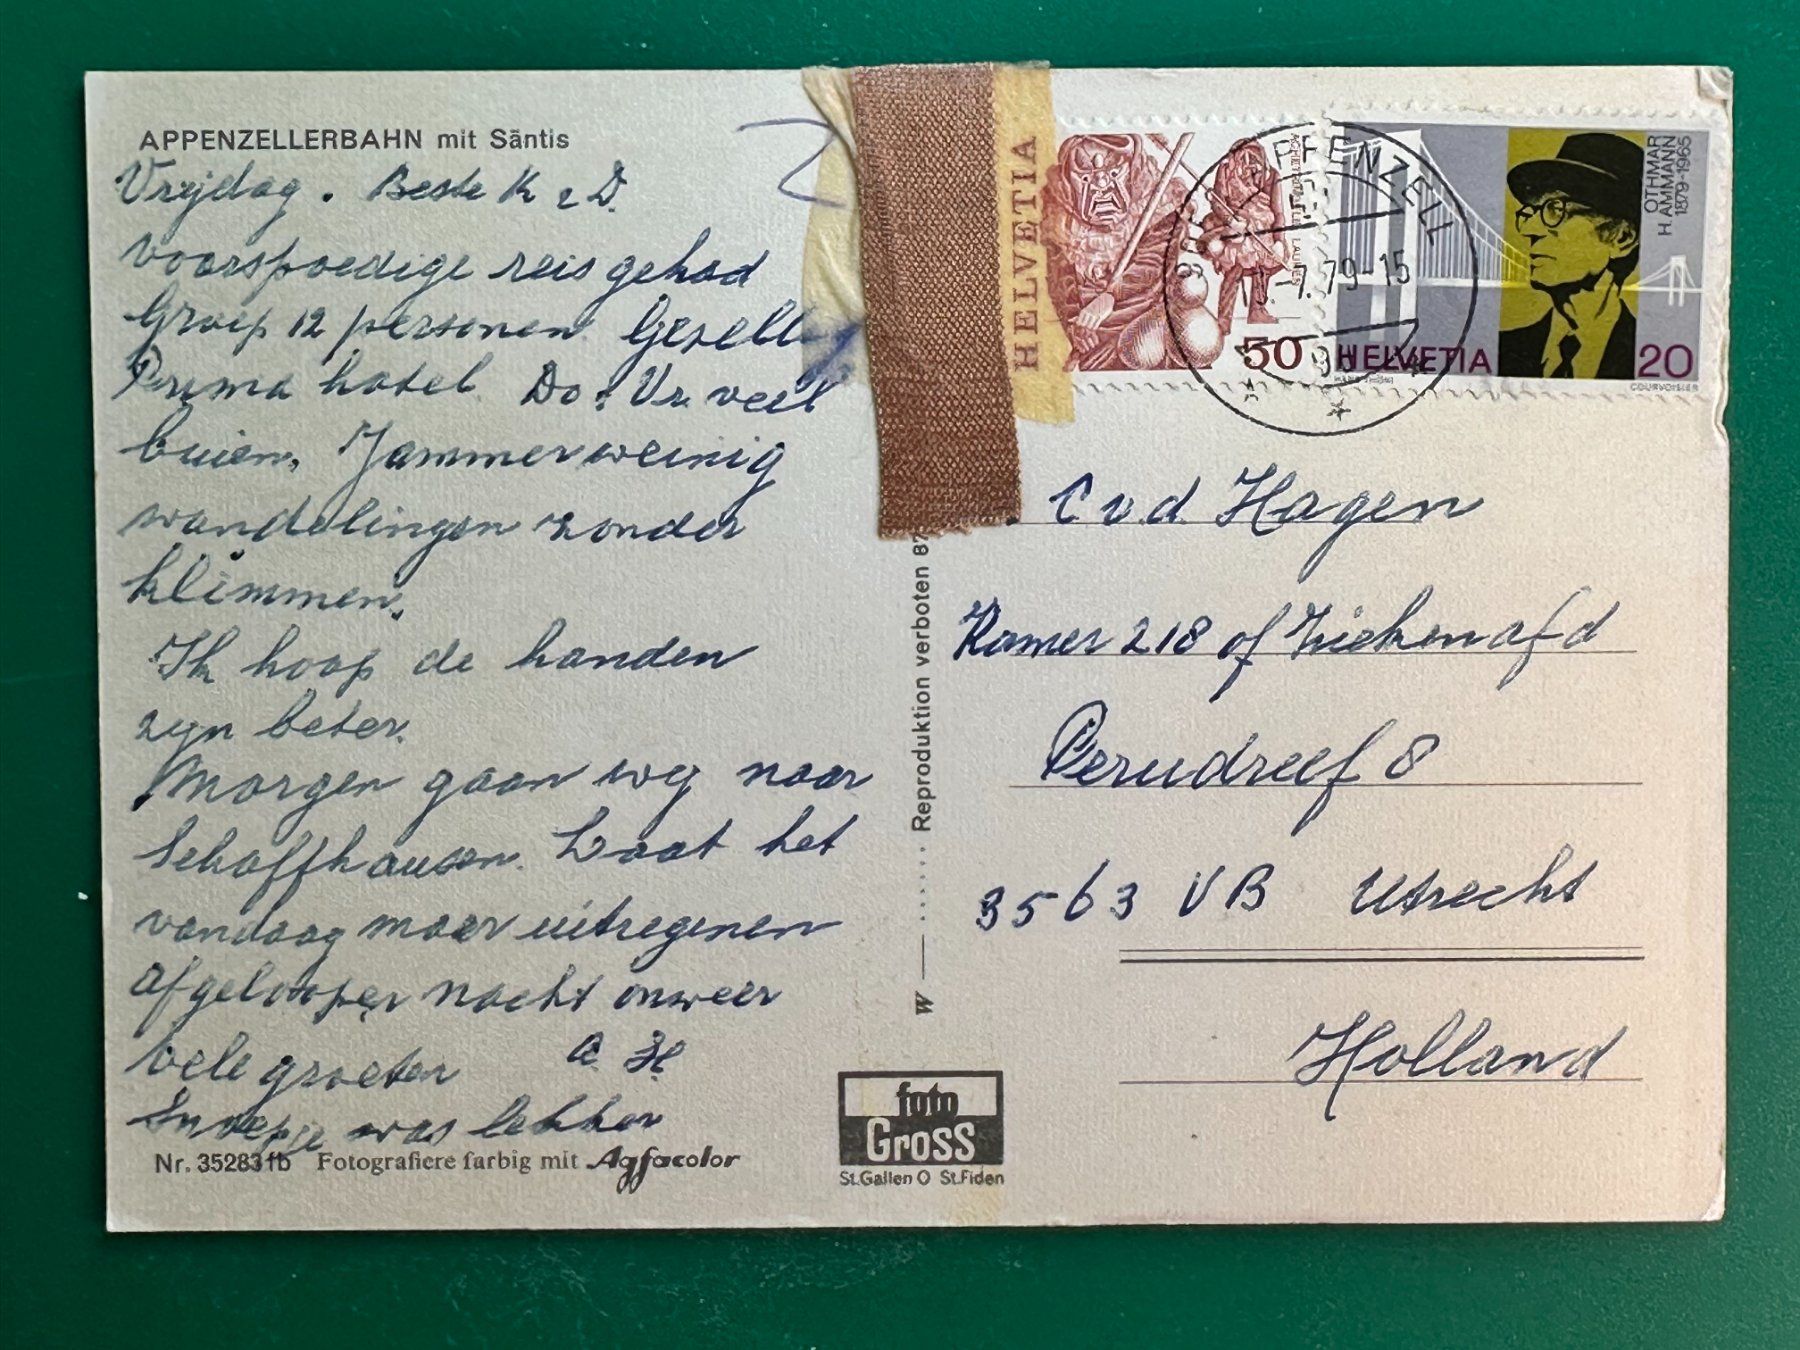 APPENZELLERBAHN mit Säntis
Vrijdag. Beste K e D.
voorspoedige reis gehad
Groep 12 personen. Gesell
Prima hotel. Do. Vr. veel
buien. Jammer weinig
wandelingen zonder
klimmen.
Ik hoop de handen
zyn beter.
Morgen gaan weg naar
Schaffhausen. Laat het
vandaag maar uitregenen
afgeloopen nacht onweer
vele groeten C. H.
Snoepje was lekker
Nr. 35283 fb Fotografiere farbig mit Agfacolor
W — ..... Reproduktion verboten 87
foto
GROSS
St.Gallen O St.Fiden
HELVETIA
50
ACHETRINGELE LAUPEN
OTHMAR
H. AMMANN
1879-1965
HELVETIA 20
COURVOISIER
APPENZELL
-7.79-15
C v.d. Hagen
Kamer 218 of Ziekenafd
Perudreef 8
3563 VB Utrecht
Holland